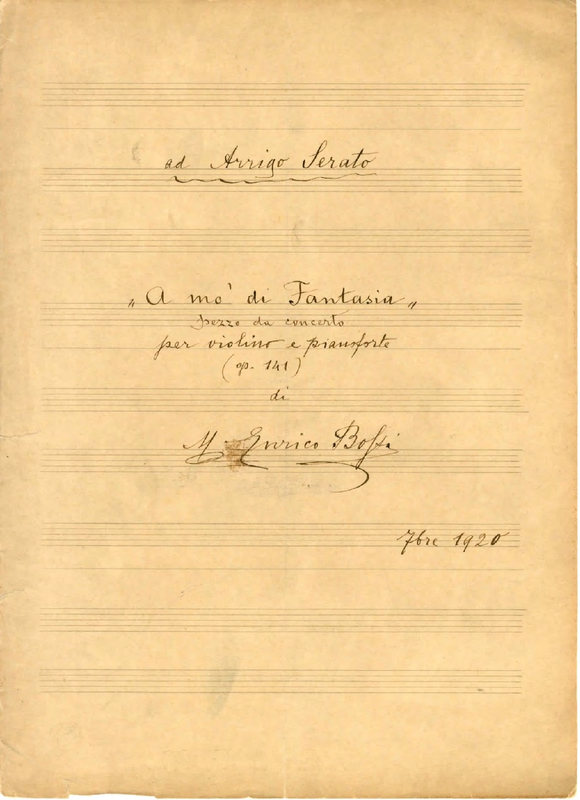 ad Arrigo Serato
„A mo' di Fantasia„
pezzo da concerto
per violino e pianoforte
(op. 141)
di
M. Enrico Bossi
7bre 1920